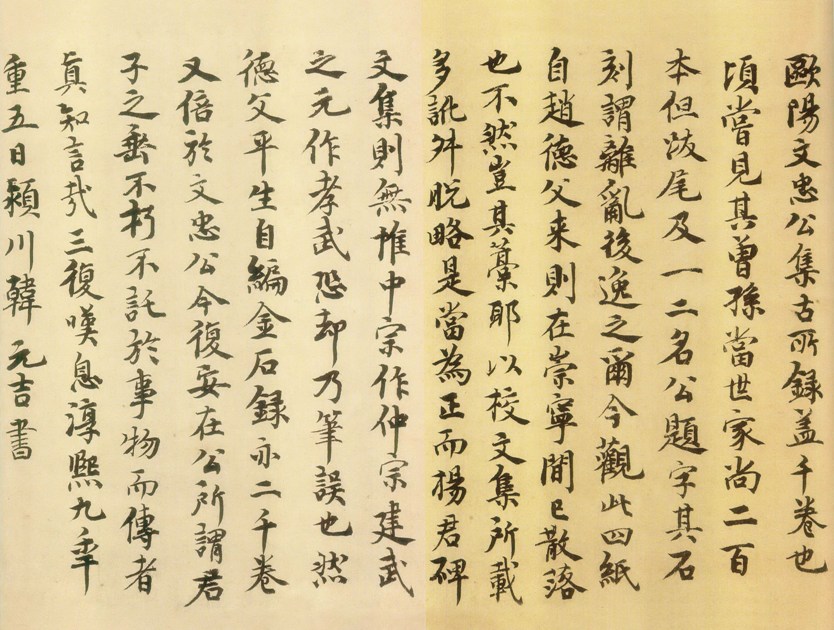 歐陽文忠公集古所録盖千卷也
頃嘗見其曽孫當世家尚二百
本但跋尾及一二名公題字其石
刻謂離亂後逸之爾今觀此四紙
自趙德父来則在崇寧間已散落
也不然豈其藁耶以校文集所載
多訛舛脱略是當為正而楊君碑
文集則無惟中宗作仲宗建武
之元作孝武恐却乃筆誤也然
德父平生自編金石録亦二千卷
又倍於文忠公今復安在公所謂君
子之垂不朽不託於事物而傳者
真知言哉三復嘆息淳熙九年
重五日潁川韓元吉書